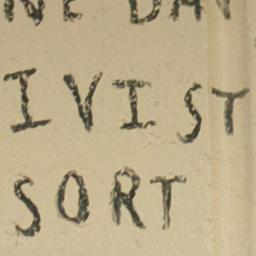 NE DAY
I VIST
SORT